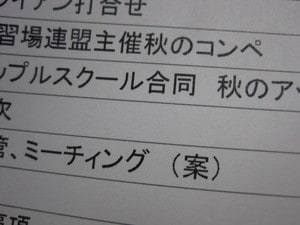 イアン打合せ
習場連盟主催秋のコンペ
ップルスクール合同 秋のア
次
管、ミーティング (案)
事項